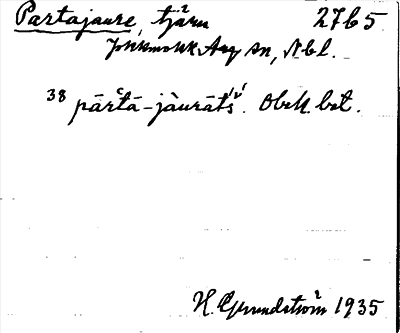 Partajaure, tjärn 27b5
Jokkmokk Aug sn, Nbl.
38 pārˈtā-jàurātś. Obek. bet.
H. Grundström 1935